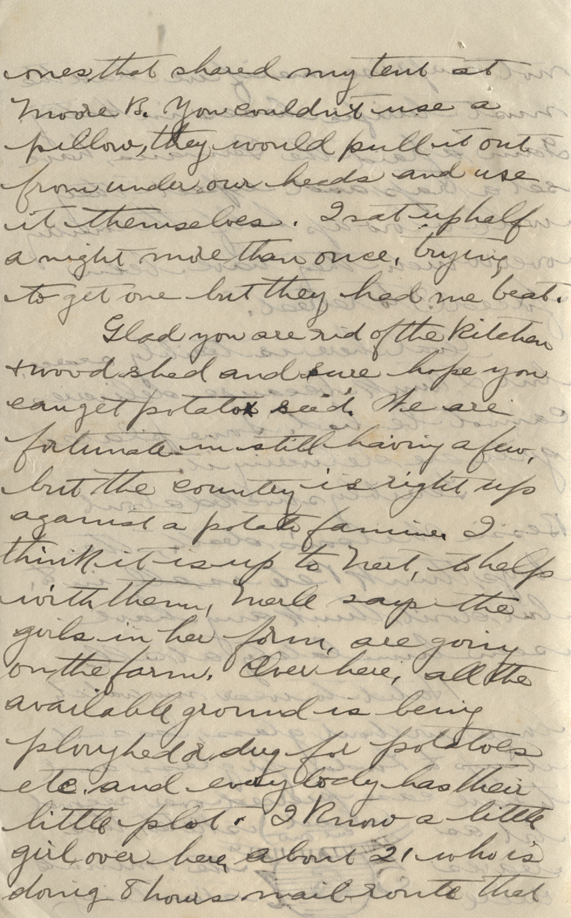 ones, that shared my tent at
Moore B. You couldn't use a
pillow, they would pull it out
from under our heads and use
it themselves. I sat up half
a night more than once, trying
to get one but they had me beat.
Glad you are rid of the kitchen
+ wood shed and sure hope you
can get potato seed. We are
fortunate in still having a few,
but the country is right up
against a potato famine. I
think it is up to Nert, to help
with them, Merle says the
girls in her form, are going
on the farm. Over here, all the
available ground is being
ploughed & dug for potatoes
etc. and everybody has their
little plot. I know a little
girl over here, about 21 who is
doing 8 hours mail route that